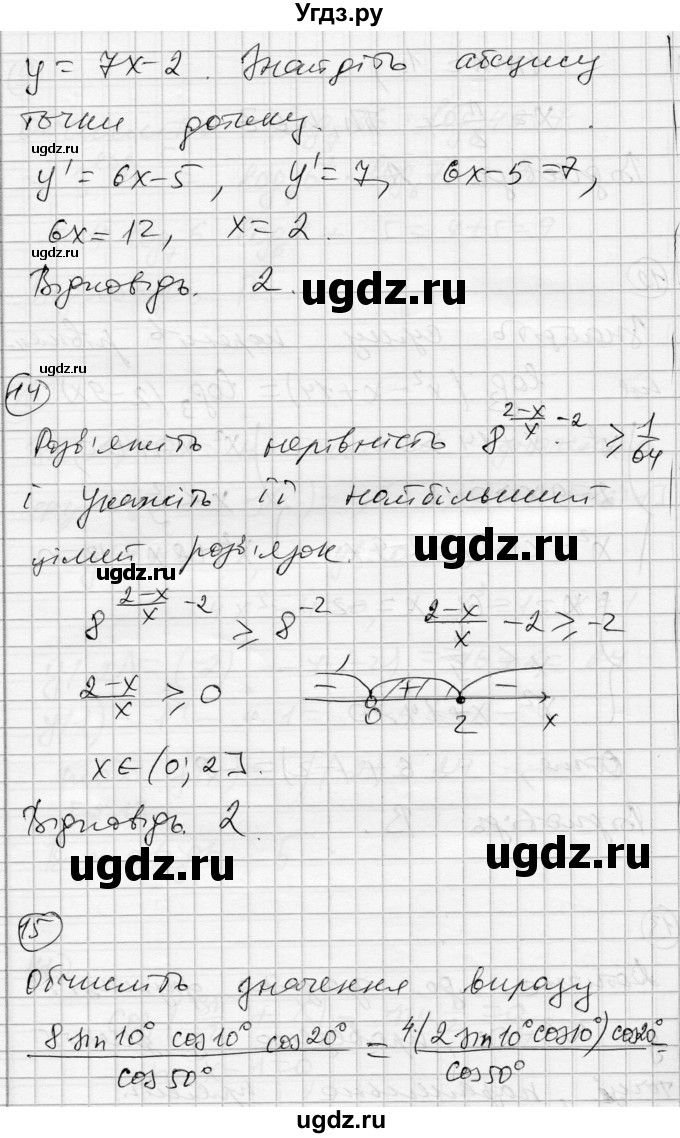 Угдз.ру
y = 7x-2. Знайдіть абсцису
точки дотику.
ugdz.ru
y' = 6x-5, y' = 7, 6x-5=7,
6x=12, x=2.
ugdz.ru
Відповідь. 2.
ugdz.ru
ugdz.ru
14
Розв'яжіть нерівність 8^((2-x)/x - 2) ≥ 1/64
і укажіть її найбільший
ugdz.ru
цілий розв'язок.
ugdz.ru
8^((2-x)/x - 2) ≥ 8^(-2) (2-x)/x - 2 ≥ -2
(2-x)/x ≥ 0 − + − 0 2 x
x ∈ (0; 2].
Відповідь. 2.
ugdz.ru
ugdz.ru
ugdz.ru
15
Обчисліть значення виразу
(8 sin10° cos10° cos20°)/(cos50°) = (4·(2 sin10° cos10°) cos20°)/(cos50°) =
ugdz.ru